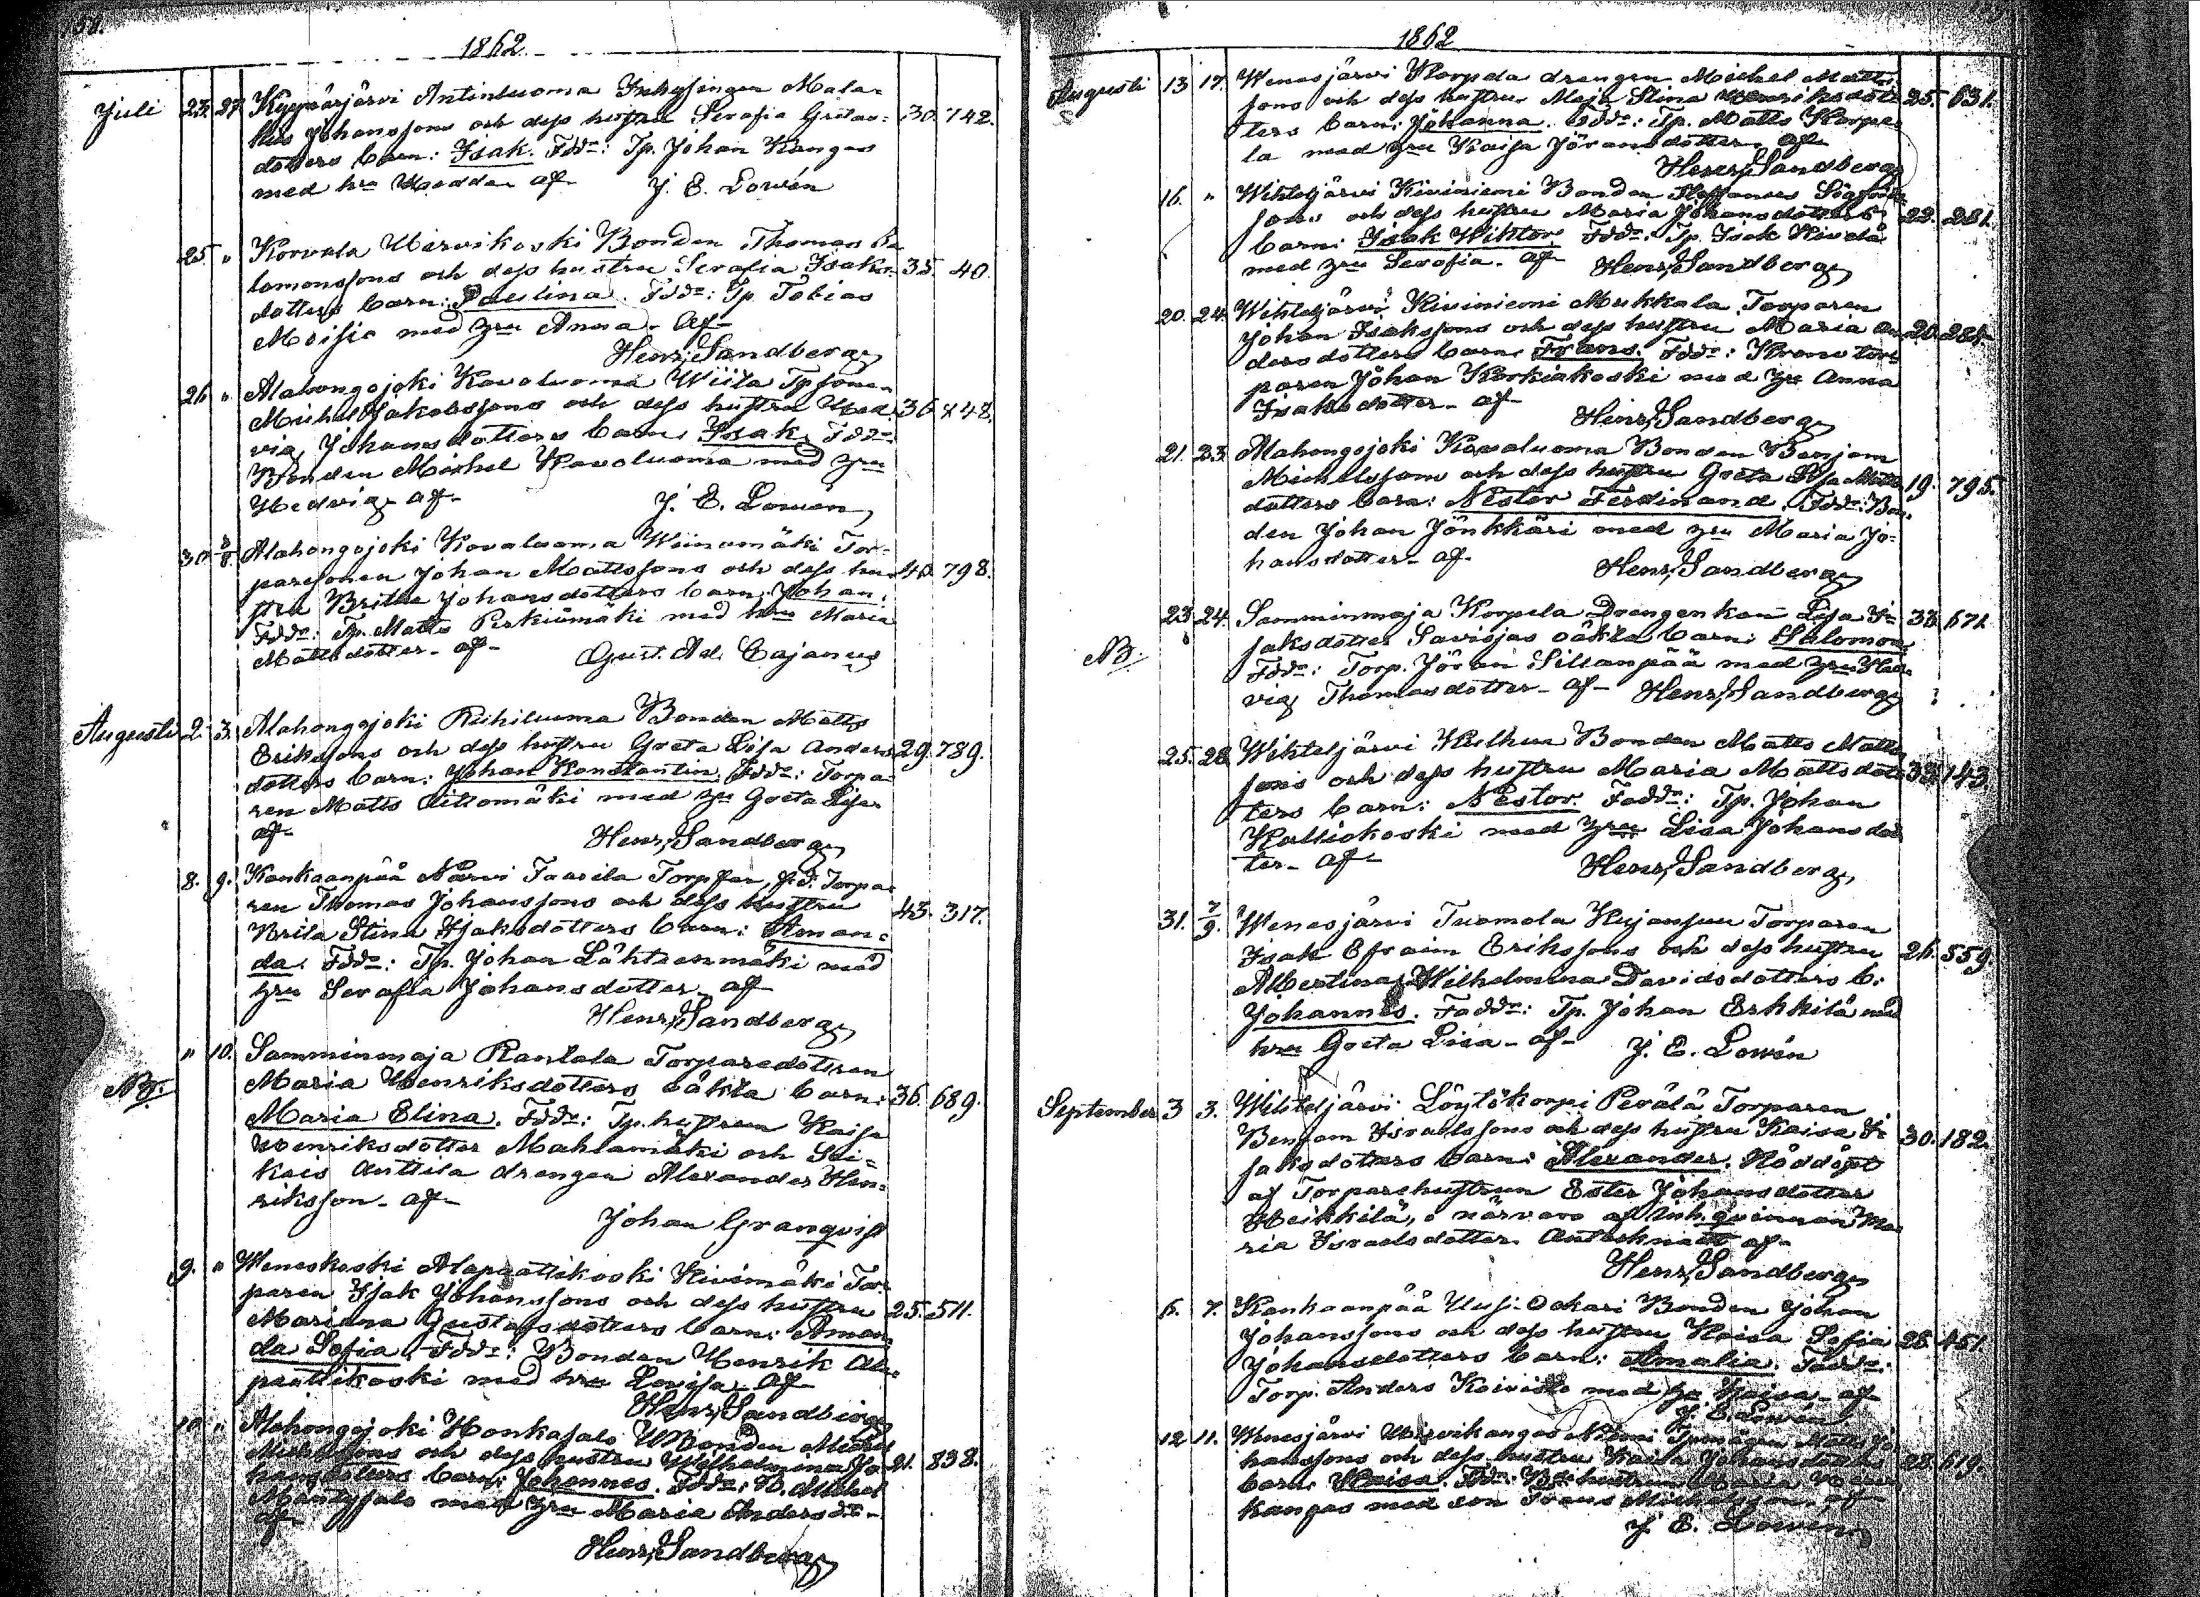 158.
1862
Juli 23. 27. Kyynärjärvi Antinluoma Inhysingen Mala-
kias Johanssons och dess hustru Serafia Gustas- 30. 742.
dotters barn: Isak. Fddr: Tp. Johan Kangas
med hru Hedda af
J. E. Lowén
25. " Korvala Wirvikoski Bonden Thomas Sa
lomonssons och dess hustru Serafia Isaks- 35. 40.
dotters barn: Paulina. Fddr: Tp. Tobias
Moisio med hru Anna - af
Henr. Sandberg
26. " Alahongojoki Kovaluoma Wiita Tp sonen
Michel Jakobssons och dess hustru Hed- 36. 848.
vig Johansdotters barn: Isak. Fddr:
Bonden Michel Kovaluoma med hru
Hedvig - af
J. E. Lowén
30. 3/8. Alahongojoki Kovaluoma Wiinamäki Tor-
paresonen Johan Mattssons och dess hu- 40. 798.
stru Britha Johansdotters barn: Johan.
Fddr: Tp. Matts Perkiömäki med hru Maria
Mattsdotter - af
Gust. Ad. Cajanus
Augusti 2. 3. Alahongojoki Riihiluoma Bonden Matts
Erikssons och dess hustru Greta Lisa Anders 29. 789.
dotters barn: Johan Konstantin. Fddr: Torpa-
ren Matts Aittomäki med hru Greta Lisa
af
Henr. Sandberg
8. 9. Kankaanpää Närvi Taarila Torpfar, f. d. Torpa-
ren Thomas Johanssons och dess hustru 43. 317.
Brita Stina Isaksdotters barn: Aman-
da. Fddr: Tp. Johan Lähteenmäki med
hru Serafia Johansdotter af
Henr. Sandberg
" 10. Samminmaja Rantala Torparedottren
NB. Maria Henriksdotters oäkta barn: 36. 689.
Maria Elina. Fddr: Tp. hustrun Kaisa
Henriksdotter Mahlamäki och Sei-
kais Anttila drengen Alexander Hen-
riksson - af
Johan Granqvist
9. " Weneskoski Alapaattikoski Kivimäki Tor
paren Isak Johanssons och dess hustru 25. 511.
Mariana Gustafsdotters barn: Aman
da Sofia. Fddr: Bonden Henrik Ala-
paattikoski med hru Lovisa - af
Henr. Sandberg
10. " Alahongojoki Honkasalo Bonden Michel
Michelssons och dess hustru Wilhelmina Jo 21. 838.
hansdotters barn: Johannes. Fddr: B. Michel
Mäntysalo med hru Maria Andersdr -
af
Henr. Sandberg
1862
Augusti 13. 17. Wenesjärvi Korpela drengen Michel Matts-
sons och dess hustru Maja Stina Henriksdot- 25. 631.
ters barn: Johanna. Fddr: Tp. Matts Korpe-
la med hru Kaisa Jöransdotter - af
Henr. Sandberg
16. " Wihteljärvi Kiviniemi Bonden Staffanus Sigfrids-
sons och dess hustru Maria Johansdotters 22. 281.
barn: Isak Wiktor. Fddr: Tp. Isak Kivelä
med hru Serafia - af
Henr. Sandberg
20. 24. Wihteljärvi Kiviniemi Mukkala Torparen
Johan Isakssons och dess hustru Maria An- 20. 284.
dersdotters barn: Frans. Fddr: Krono tor-
paren Johan Korkiakoski med hru Anna
Isaksdotter - af
Henr. Sandberg
21. 23. Alahongojoki Kovaluoma Bonden Benjam
Michelssons och dess hustru Greta Lisa Matts 19. 795.
dotters barn: Nestor Ferdinand. Fddr: Bon-
den Johan Jönkkäri med hru Maria Jo-
hansdotter - af
Henr. Sandberg
23. 24. Samminmaja Korpela Drengenkan Lisa I- 33. 671.
NB. saksdotter Savisjas oäkta barn: Salomon.
Fddr: Torp. Jöran Sillanpää med hru Hed-
vig Thomasdotter - af Henr. Sandberg
25. 28. Wihteljärvi Kulhua Bonden Matts Matts
sons och dess hustru Maria Mattsdot- 33. 143.
ters barn: Nestor. Faddr: Tp. Johan
Kalliokoski med hru Lisa Johansdot
ter - af
Henr. Sandberg
31. 7/9. Wenesjärvi Tuomola Kujansuu Torparen
Isak Efraim Erikssons och dess hustru 26. 559.
Albertina Wilhelmina Davidsdotters b:
Johannes. Faddr: Tp. Johan Erkkilä med
hru Greta Lisa - af
J. E. Lowén
September 3. 3. Wihteljärvi Löytökorpi Perälä Torparen
Benjam Israelssons och dess hustru Kaisa I- 30. 182.
saksdotters barn: Alexander. Nöddöpt
af Torparehustrun Ester Johansdotter
Heikkilä, i närvaro af Inh. qvinnan Ma
ria Israelsdotter. Antecknadt af
Henr. Sandberg
6. 7. Kankaanpää Uusi-Ockari Bonden Johan
Johanssons och dess hustru Kaisa Sofia 28. 451.
Johansdotters barn: Amalia. Faddr:
Torp. Anders Koivisto med hru Kaisa - af
J. E. Lowén
12. 11. Wenesjärvi Wirvikangas Niemi Matts Jo-
hanssons och dess hustru Kaisa Johansdotters 28. 619.
barn: Kaisa. Fddr: Maria
kangas med son Frans Michelsson - af
J. E. Lowén